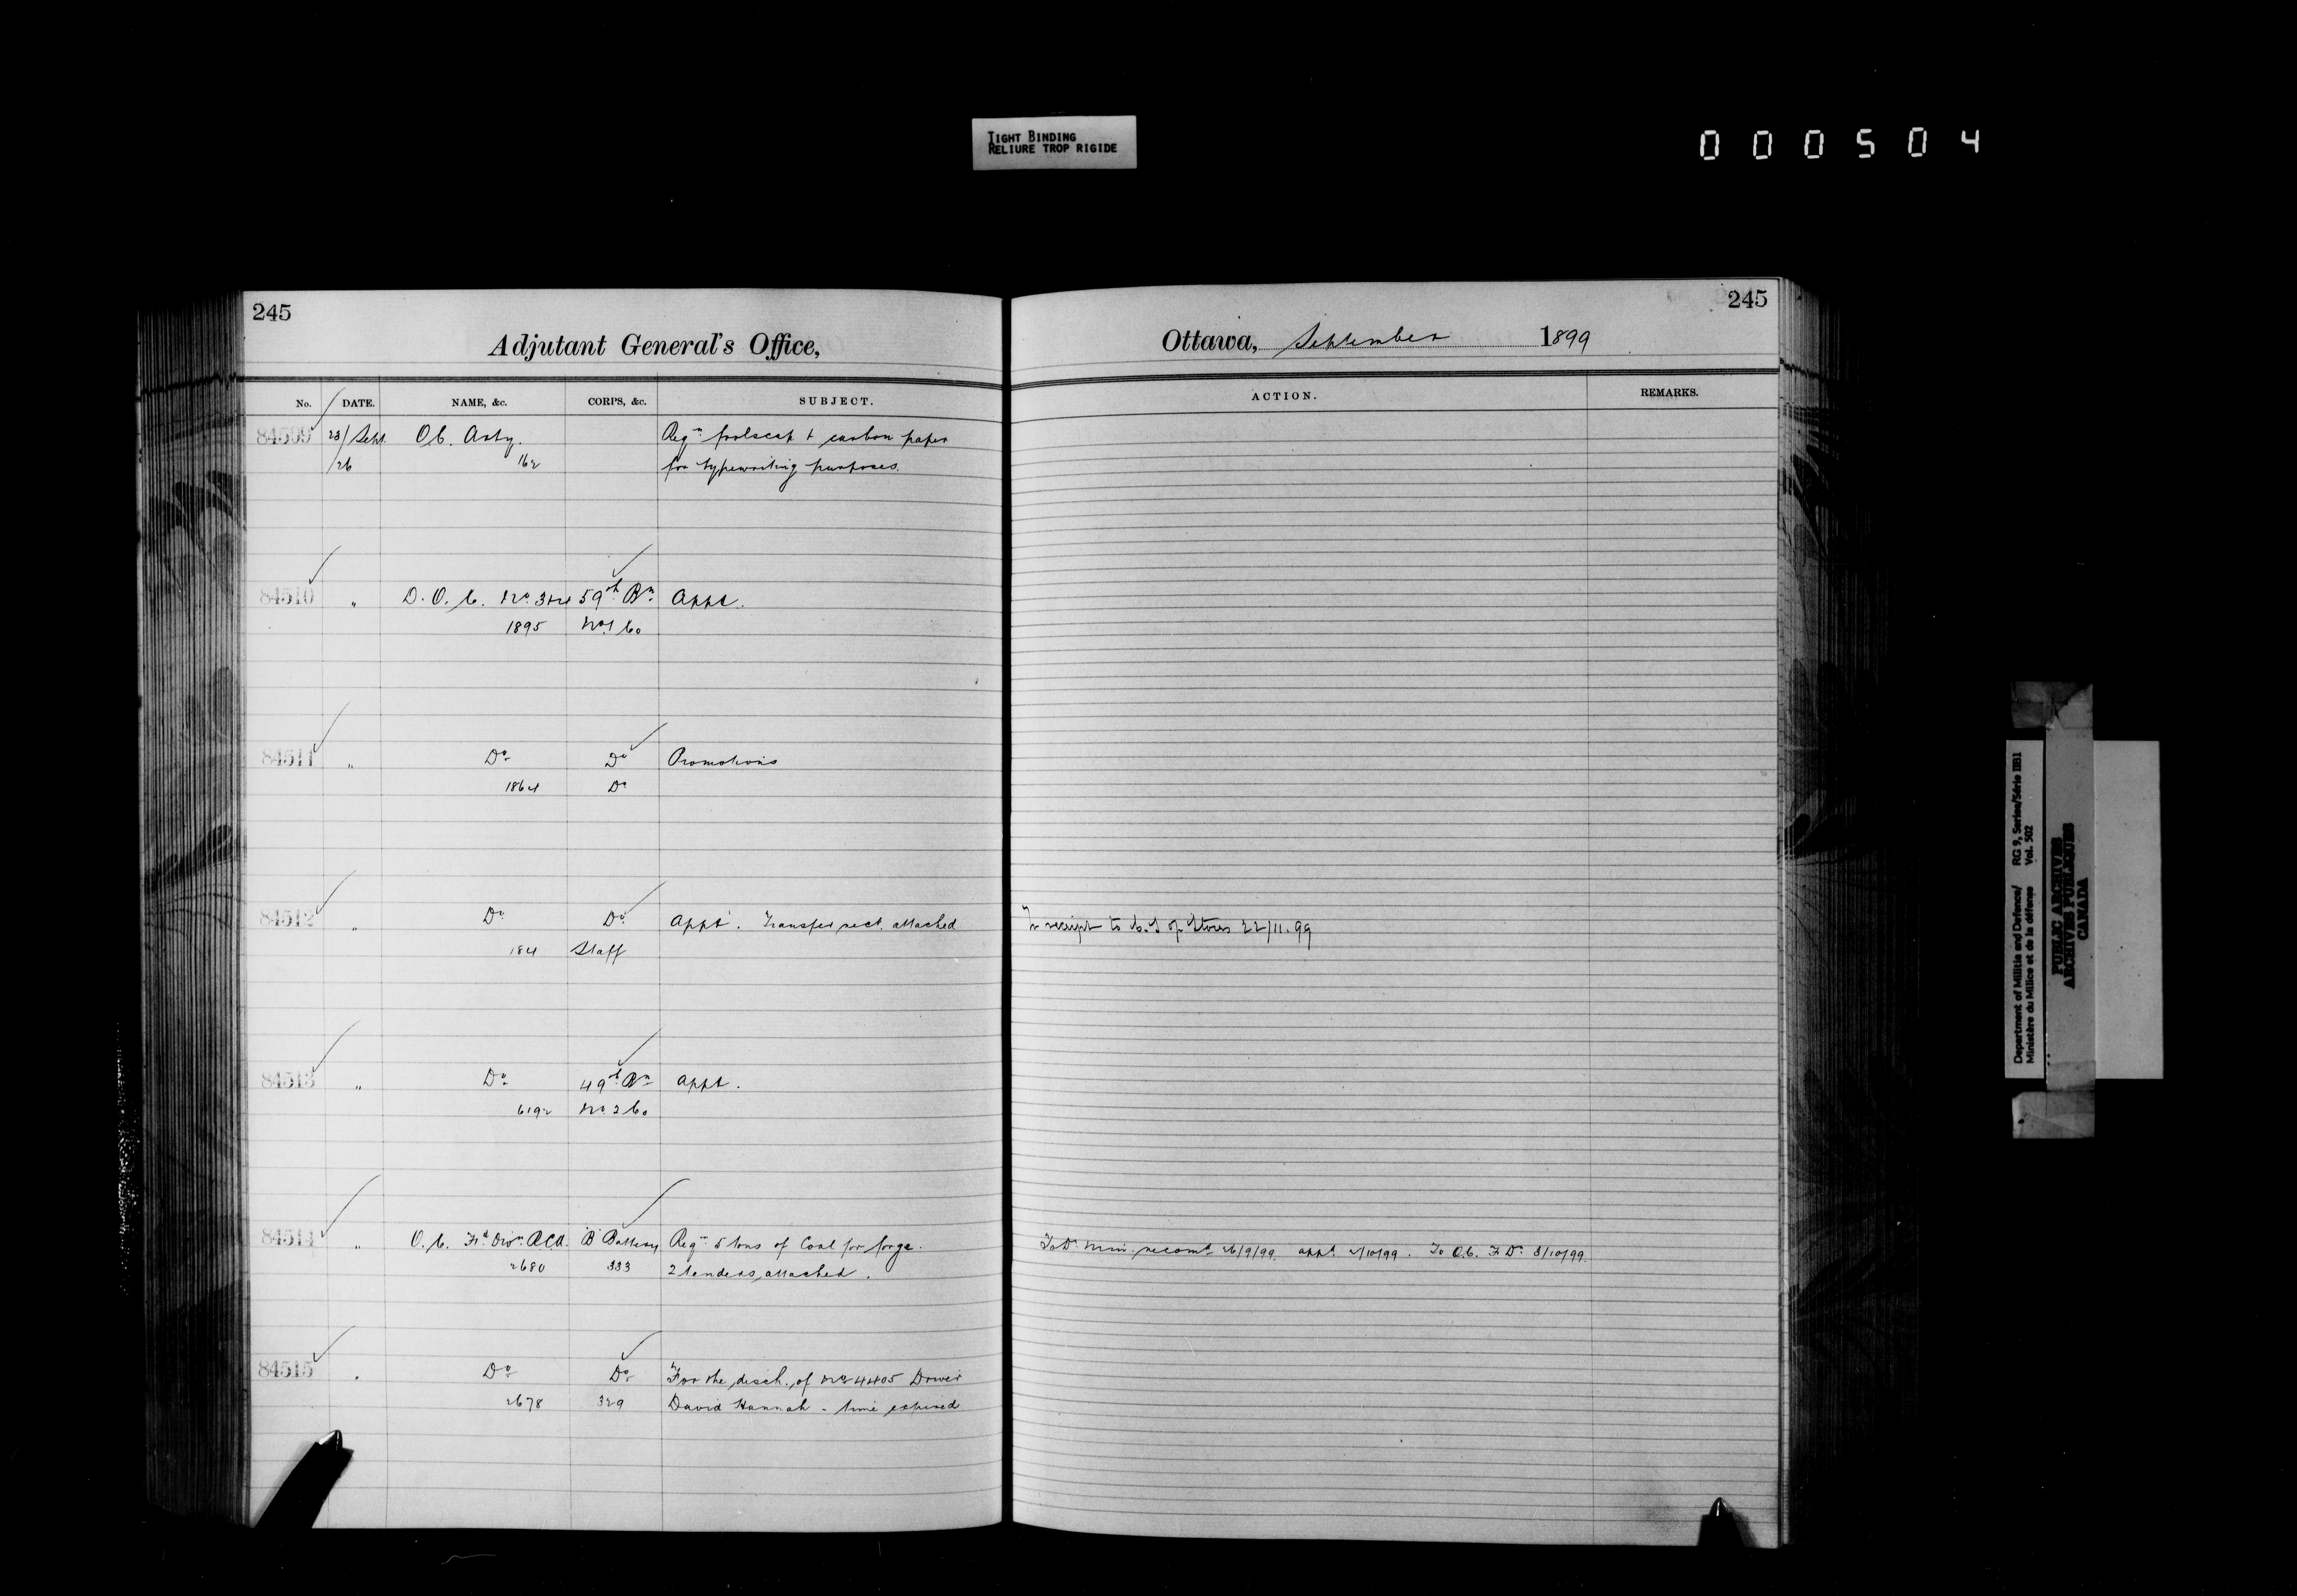 TIGHT BINDING
RELIURE TROP RIGIDE
000504
245
Adjutant General's Office,
No. DATE. NAME, &c. CORPS, &c. SUBJECT.
84509 23/Sept. O.C. Arty. Reqn foolscap & carbon paper
/26 162 for typewriting purposes.
84510 " D.O.C. No. 3&4 59th Bn Appt.
1895 No 1 Co
84511 " Do Do Promotions
1864 Do
84512 " Do Do Appt. Transfer rect. attached
184 Staff
84513 " Do 49th Bn Appt.
6192 No. 2 Co
84514 " O.C. Fd Divn. RCA. "B" Battery Reqn 5 tons of Coal for forge.
2680 333 2 tenders attached.
84515 " Do Do For the disch. of No 4405 Driver
2678 329 David Hannah - time expired
245
Ottawa, September 1899
ACTION. REMARKS.
Tr receipt to C.S of Stores 22/11.99
To D. Min. recomd 26/9/99. appd. 2/10/99. To O.C. F.D. 3/10/99.
Department of Militia and Defence/ RG 9, Series/Série IIB1
Ministère du Milice et de la défense Vol. 502
PUBLIC ARCHIVES
ARCHIVES PUBLIQUES
CANADA